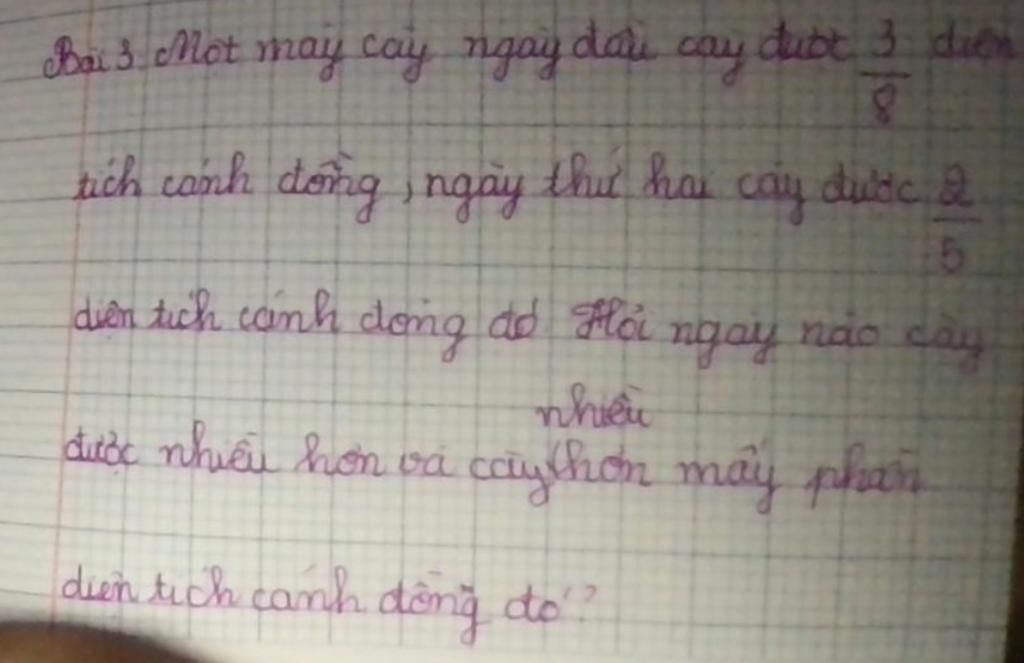 Bài 3 Một máy cày ngày đầu cày được 3/8 diện
tích cánh đồng, ngày thứ hai cày được 2/5
diện tích cánh đồng đó Hỏi ngày nào cày
nhiều
được nhiều hơn và cày (hơn mấy phần
diện tích cánh đồng đó?